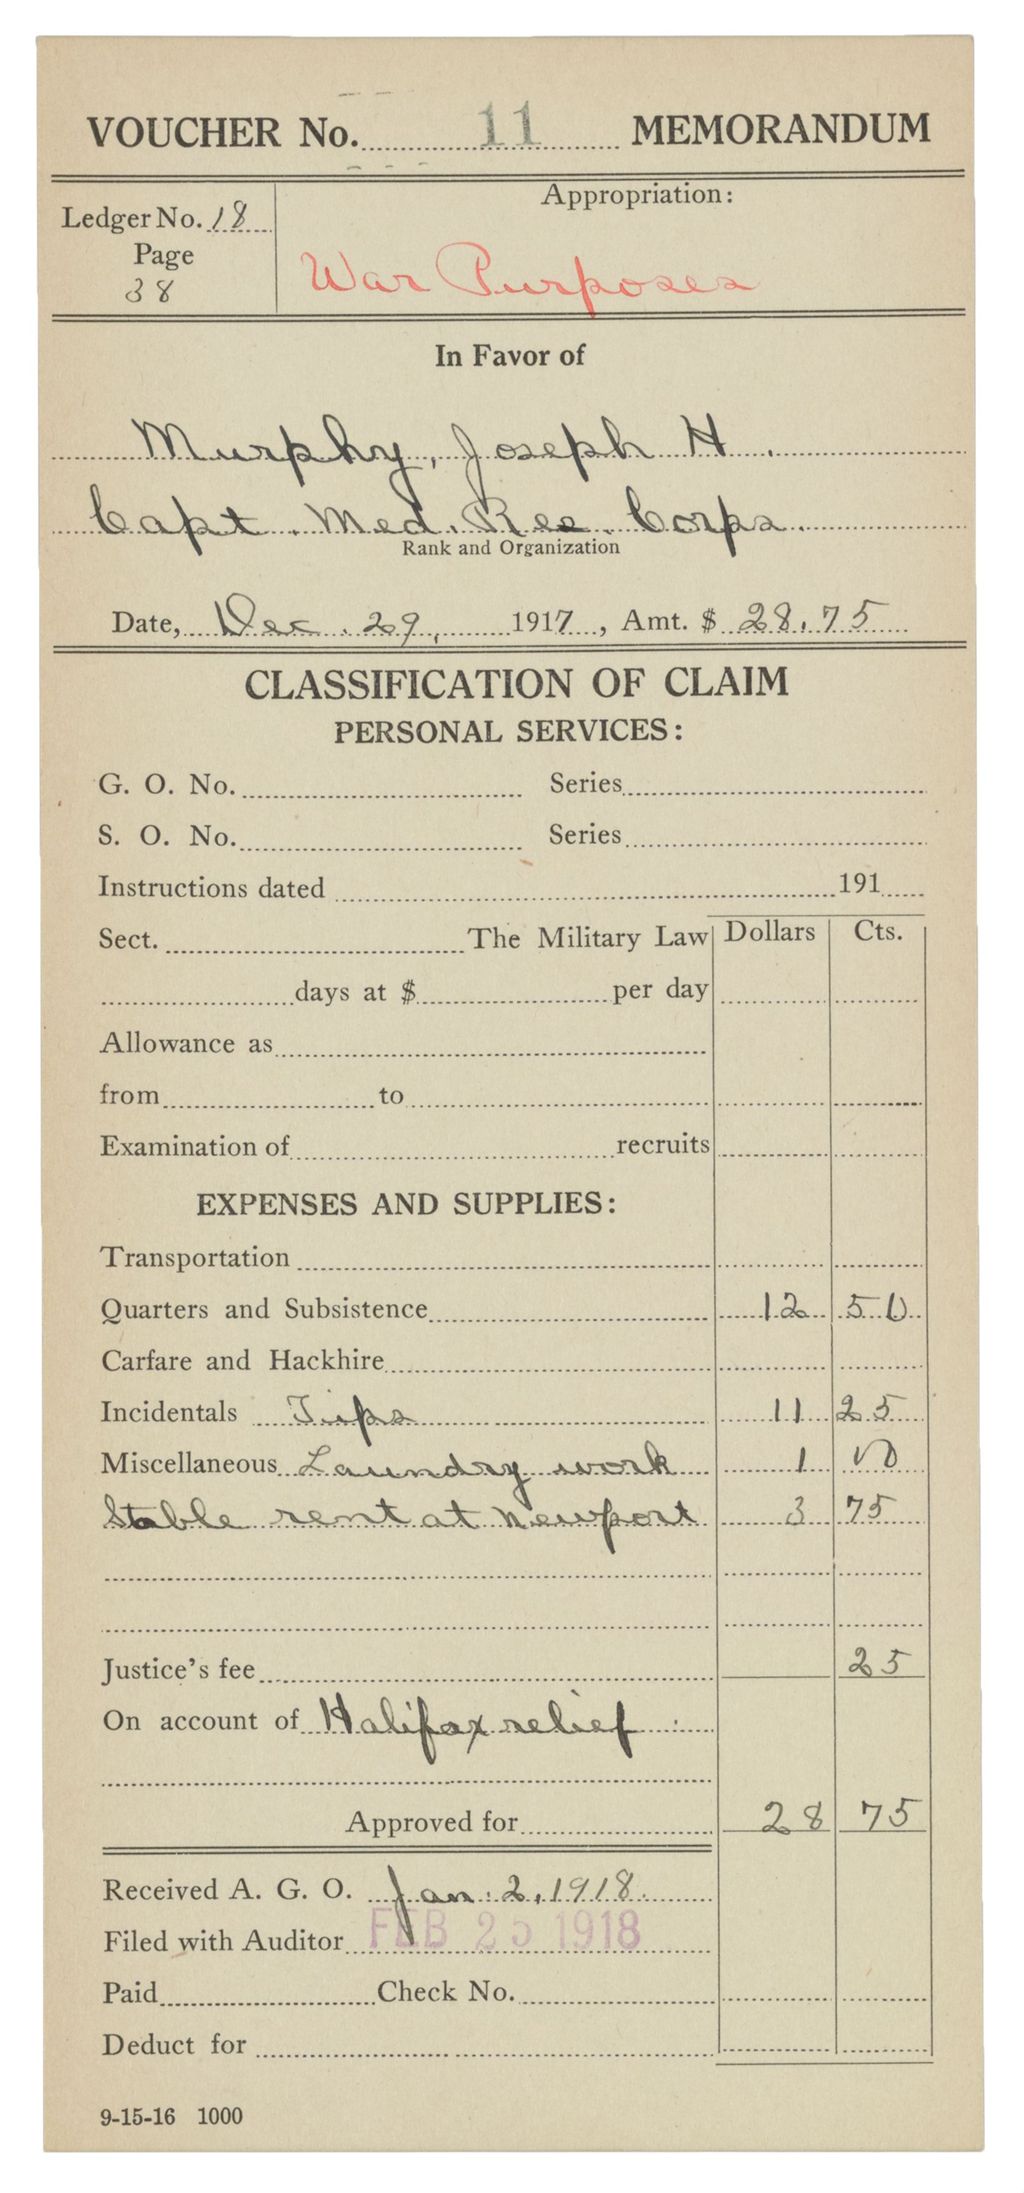 VOUCHER No. 11 MEMORANDUM
Appropriation:
Ledger No. 18
Page
38
War Purposes
In Favor of
Murphy, Joseph H.
Capt. Med. Res. Corps.
Rank and Organization
Date, Dec. 29, 1917, Amt. $ 28.75
CLASSIFICATION OF CLAIM
PERSONAL SERVICES:
G. O. No. Series
S. O. No. Series
Instructions dated 191
Sect. The Military Law Dollars Cts.
days at $ per day
Allowance as
from to
Examination of recruits
EXPENSES AND SUPPLIES:
Transportation
Quarters and Subsistence 12 50
Carfare and Hackhire
Incidentals Tips 11 25
Miscellaneous Laundry work 1 00
Stable rent at Newport 3 75
Justice's fee 25
On account of Halifax relief.
Approved for 28 75
Received A. G. O. Jan. 2, 1918.
Filed with Auditor FEB 25 1918
Paid Check No.
Deduct for
9-15-16 1000